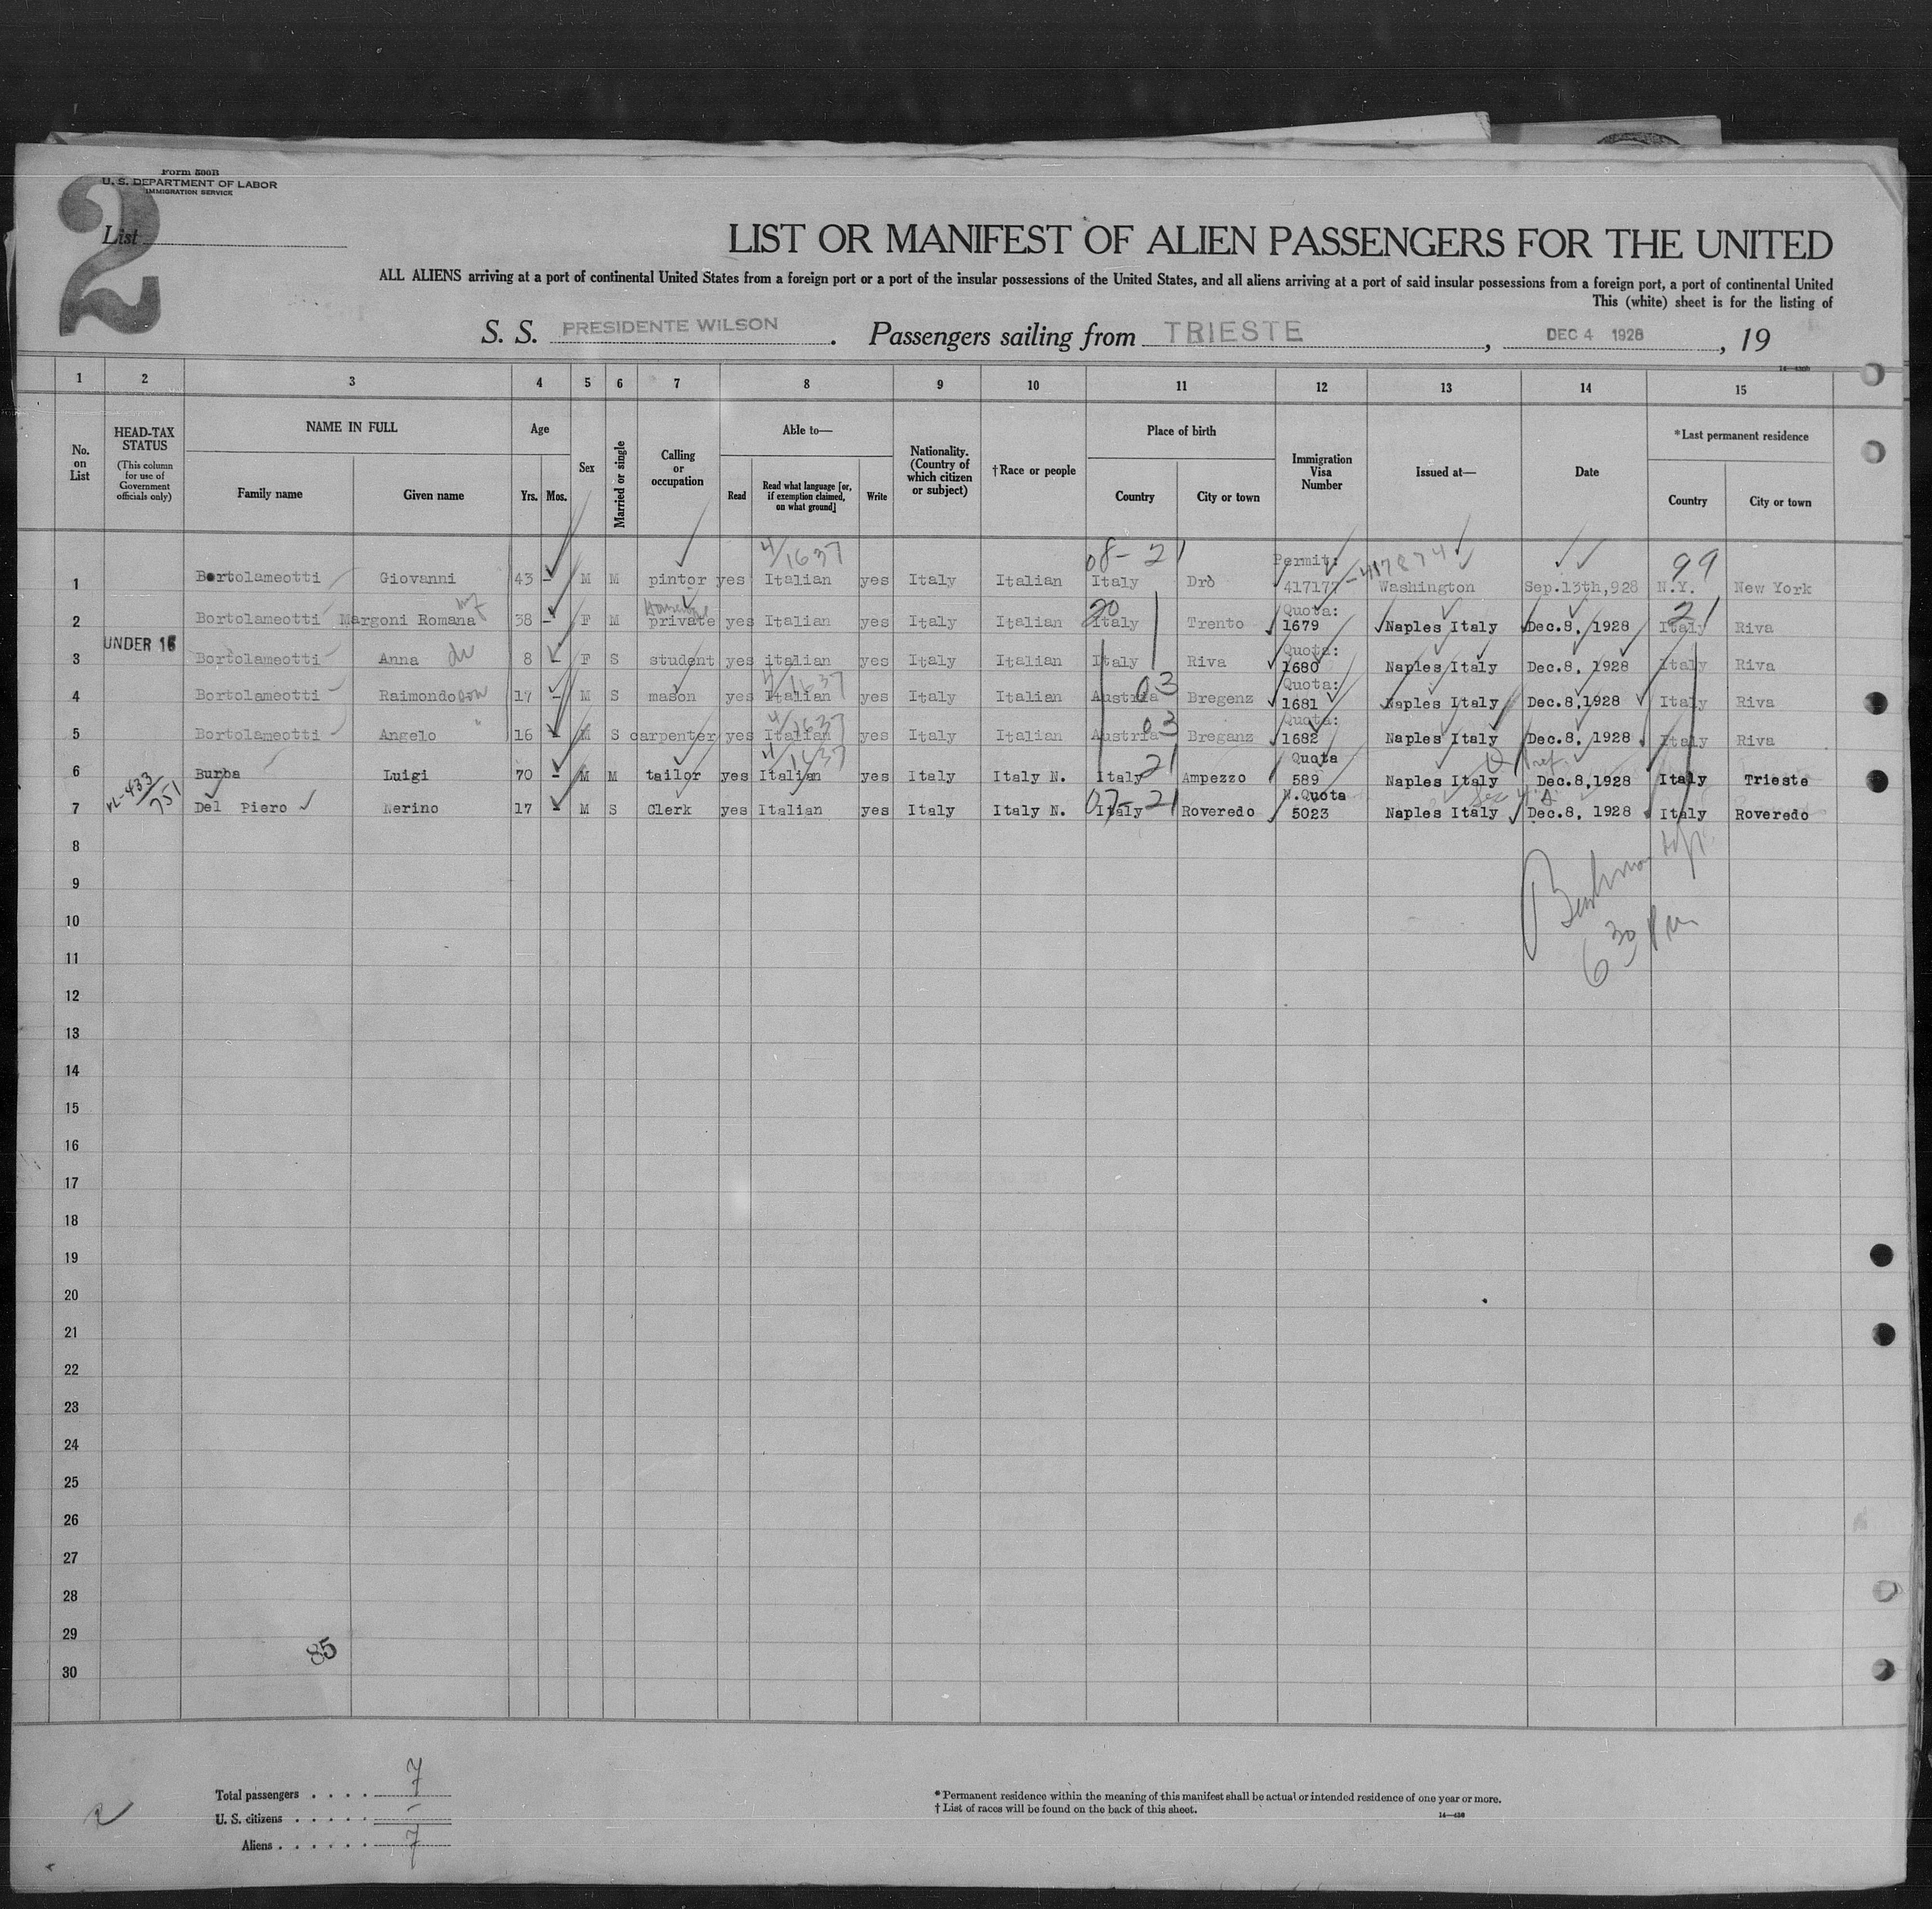 Form 500B
U. S. DEPARTMENT OF LABOR
IMMIGRATION SERVICE
2
List
LIST OR MANIFEST OF ALIEN PASSENGERS FOR THE UNITED
ALL ALIENS arriving at a port of continental United States from a foreign port or a port of the insular possessions of the United States, and all aliens arriving at a port of said insular possessions from a foreign port, a port of continental United
This (white) sheet is for the listing of
S. S. PRESIDENTE WILSON. Passengers sailing from TRIESTE, DEC 4 1928, 19
1 2 3 4 5 6 7 8 9 10 11 12 13 14 15
No. on List
HEAD-TAX STATUS
(This column for use of Government officials only)
NAME IN FULL
Family name
Given name
Age
Yrs. Mos.
Sex
Married or single
Calling or occupation
Able to—
Read
Read what language [or, if exemption claimed, on what ground]
Write
Nationality. (Country of which citizen or subject)
†Race or people
Place of birth
Country
City or town
Immigration Visa Number
Issued at—
Date
*Last permanent residence
Country
City or town
4/1637 08-21 Permit: 417874 99
1 Bortolameotti Giovanni 43 - M M pintor yes Italian yes Italy Italian Italy Drò 417177 Washington Sep.13th,928 N.Y. New York
20 Quota: 21
2 Bortolameotti Margoni Romana wf 38 - F M private yes Italian yes Italy Italian Italy Trento 1679 Naples Italy Dec.8, 1928 Italy Riva
UNDER 16 Quota:
3 Bortolameotti Anna 8 - F S student yes italian yes Italy Italian Italy Riva 1680 Naples Italy Dec.8, 1928 Italy Riva
4/1637 03 Quota:
4 Bortolameotti Raimondo son 17 - M S mason yes Italian yes Italy Italian Austria Bregenz 1681 Naples Italy Dec.8,1928 Italy Riva
4/1637 03 Quota:
5 Bortolameotti Angelo " 16 - M S carpenter yes Italian yes Italy Italian Austria Breganz 1682 Naples Italy Dec.8, 1928 Italy Riva
4/1637 21 Quota
6 Burba Luigi 70 - M M tailor yes Italian yes Italy Italy N. Italy Ampezzo 589 Naples Italy Dec.8,1928 Italy Trieste
07-21 N.Quota
7 Del Piero Nerino 17 - M S Clerk yes Italian yes Italy Italy N. Italy Roveredo 5023 Naples Italy Dec.8, 1928 Italy Roveredo
8
9
10
6 30 PM
11
12
13
14
15
16
17
18
19
20
21
22
23
24
25
26
27
28
29
85
30
Total passengers . . . . 7
U. S. citizens . . . . . -
Aliens . . . . . . 7
* Permanent residence within the meaning of this manifest shall be actual or intended residence of one year or more.
† List of races will be found on the back of this sheet.